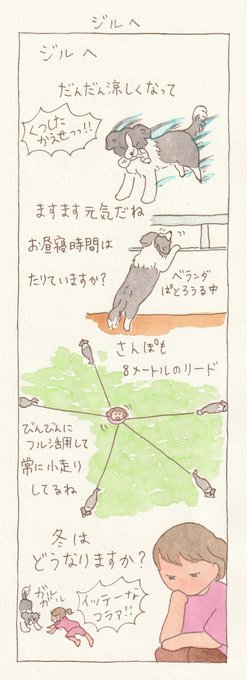 ジルへ
ジルへ
だんだん涼しくなって
くつした
かえせっっ!!
ますます元気だね
お昼寝時間は
たりていますか?
ベランダ
ぱとろうる中
さんぽも
8メートルのリード
びんびんに
フル活用して
常に小走り
してるね
冬は
どうなりますか?
ガル
ガル
イッテーな
コラァ!!